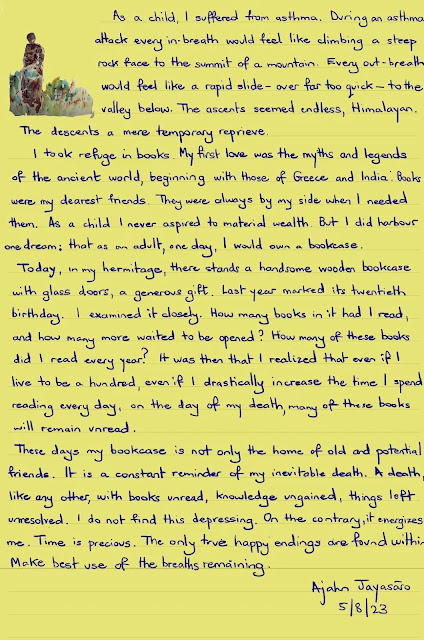 As a child, I suffered from asthma. During an asthma
attack every in-breath would feel like climbing a steep
rock face to the summit of a mountain. Every out-breath
would feel like a rapid slide - over far too quick - to the
valley below. The ascents seemed endless, Himalayan.
The descents a mere temporary reprieve.
I took refuge in books. My first love was the myths and legends
of the ancient world, beginning with those of Greece and India. Books
were my dearest friends. They were always by my side when I needed
them. As a child I never aspired to material wealth. But I did harbour
one dream; that as an adult, one day, I would own a bookcase.
Today, in my hermitage, there stands a handsome wooden bookcase
with glass doors, a generous gift. Last year marked its twentieth
birthday. I examined it closely. How many books in it had I read,
and how many more waited to be opened? How many of these books
did I read every year? It was then that I realized that even if I
live to be a hundred, even if I drastically increase the time I spend
reading every day, on the day of my death, many of these books
will remain unread.
These days my bookcase is not only the home of old and potential
friends. It is a constant reminder of my inevitable death. A death,
like any other, with books unread, knowledge ungained, things left
unresolved. I do not find this depressing. On the contrary, it energizes
me. Time is precious. The only true happy endings are found within.
Make best use of the breaths remaining.
Ajahn Jayasāro
5/8/23